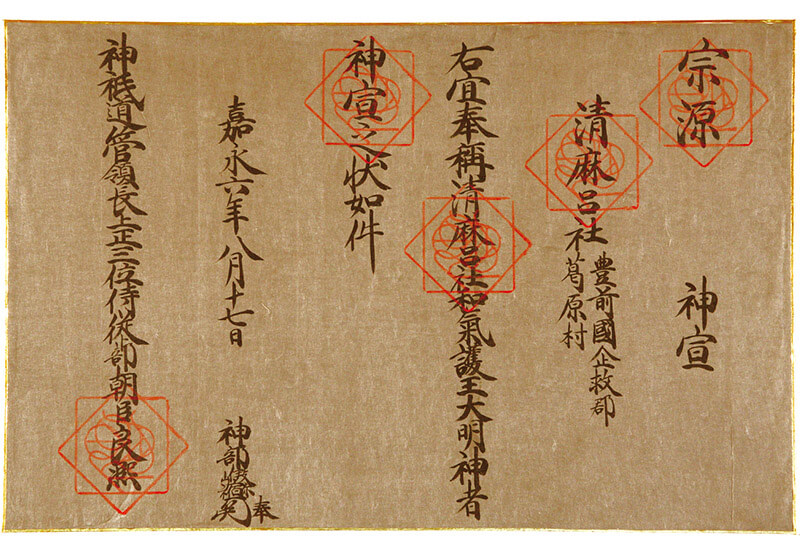 宗源 神宣
清麻呂社 豊前國企救郡
葛原村
右宜奉稱清麻呂社和氣護王大明神者
神宣之状如件
嘉永六年八月十七日
神部 奉
神祇道管領長上正三位侍従卜部朝臣良熙